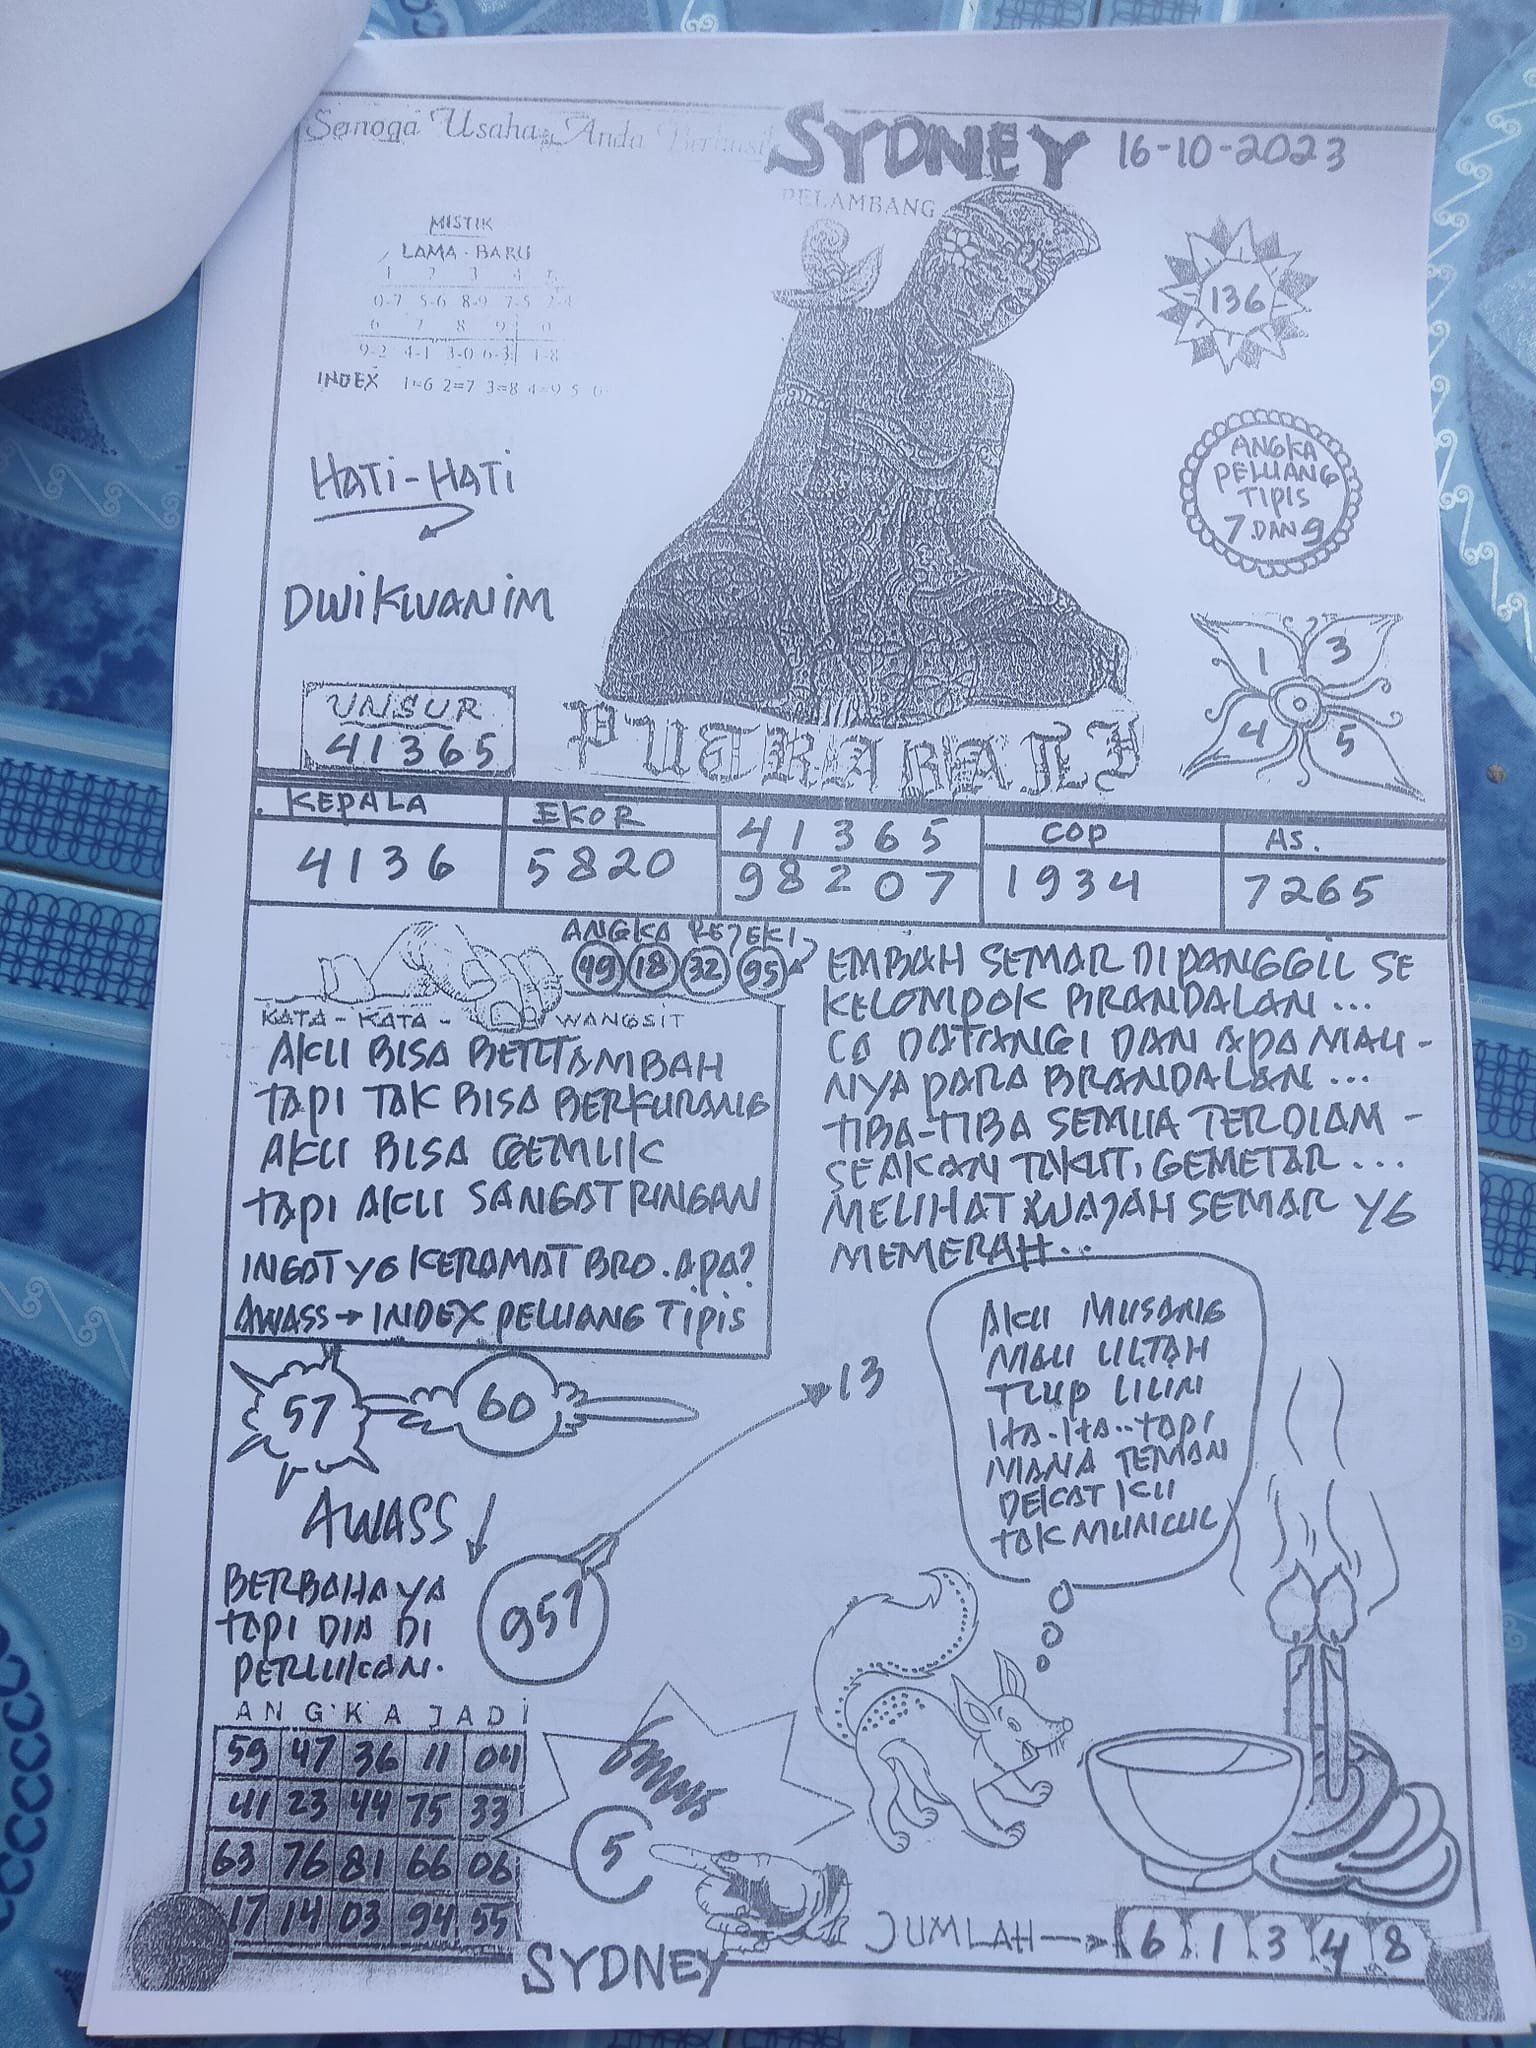 Semoga Usaha Anda Berhasil
SYDNEY 16-10-2023
PELAMBANG
MISTIK
LAMA - BARU
1 2 3 4 5
0-7 5-6 8-9 7-5 2-4
6 7 8 9 0
9-2 4-1 3-0 6-3 1-8
INDEX 1=6 2=7 3=8 4=9 5
136
HATI-HATI
ANGKA
PELUANG
TIPIS
7 DAN 9
DWIKWANIM
1 3
4 5
UNSUR
41365
PUTRA BALI
KEPALA EKOR 41365 COP AS.
4136 5820 98207 1934 7265
ANGKA REJEKI
49 18 32 95
KATA - KATA - WANGSIT
AKU BISA BERTAMBAH
TAPI TAK BISA BERKURANG
AKU BISA GEMUK
TAPI AKU SANGAT RINGAN
INGAT YG KERAMAT BRO. APA?
AWASS → INDEX PELUANG TIPIS
EMBAH SEMAR DIPANGGIL SE
KELOMPOK BRANDALAN...
DATANGI DAN APA MAU-
NYA PARA BRANDALAN...
TIBA-TIBA SEMUA TERDIAM -
SEAKAN TAKUT, GEMETAR...
MELIHAT WAJAH SEMAR YG
MEMERAH...
57 60
13
AKU MUSANG
MAU ULTAH
TIUP LILIN
HA-HA..TAPI
MANA TEMAN
DEKAT KU
TAK MUNCUL
AWASS
BERBAHAYA
TAPI DIA DI
PERLUKAN.
957
ANGKA JADI
59 47 36 11 04
41 23 44 75 33
63 76 81 66 06
17 14 03 94 55
5
JUMLAH → 6 1 3 4 8
SYDNEY